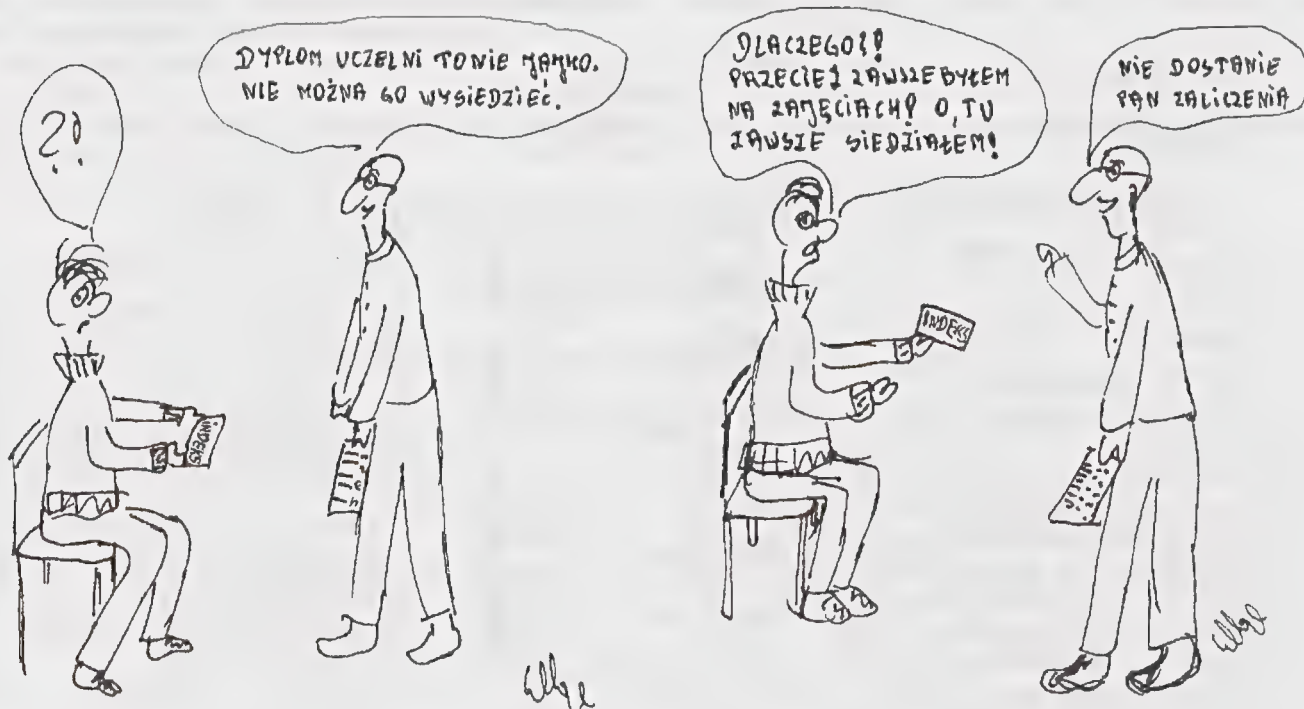 ?!
DYPLOM UCZELNI TO NIE JAJKO.
NIE MOŻNA GO WYSIEDZIEĆ.
INDEKS
DLACZEGO?!
PRZECIEŻ ZAWSZE BYŁEM
NA ZAJĘCIACH! O, TU
ZAWSZE SIEDZIAŁEM!
INDEKS
NIE DOSTANIE
PAN ZALICZENIA